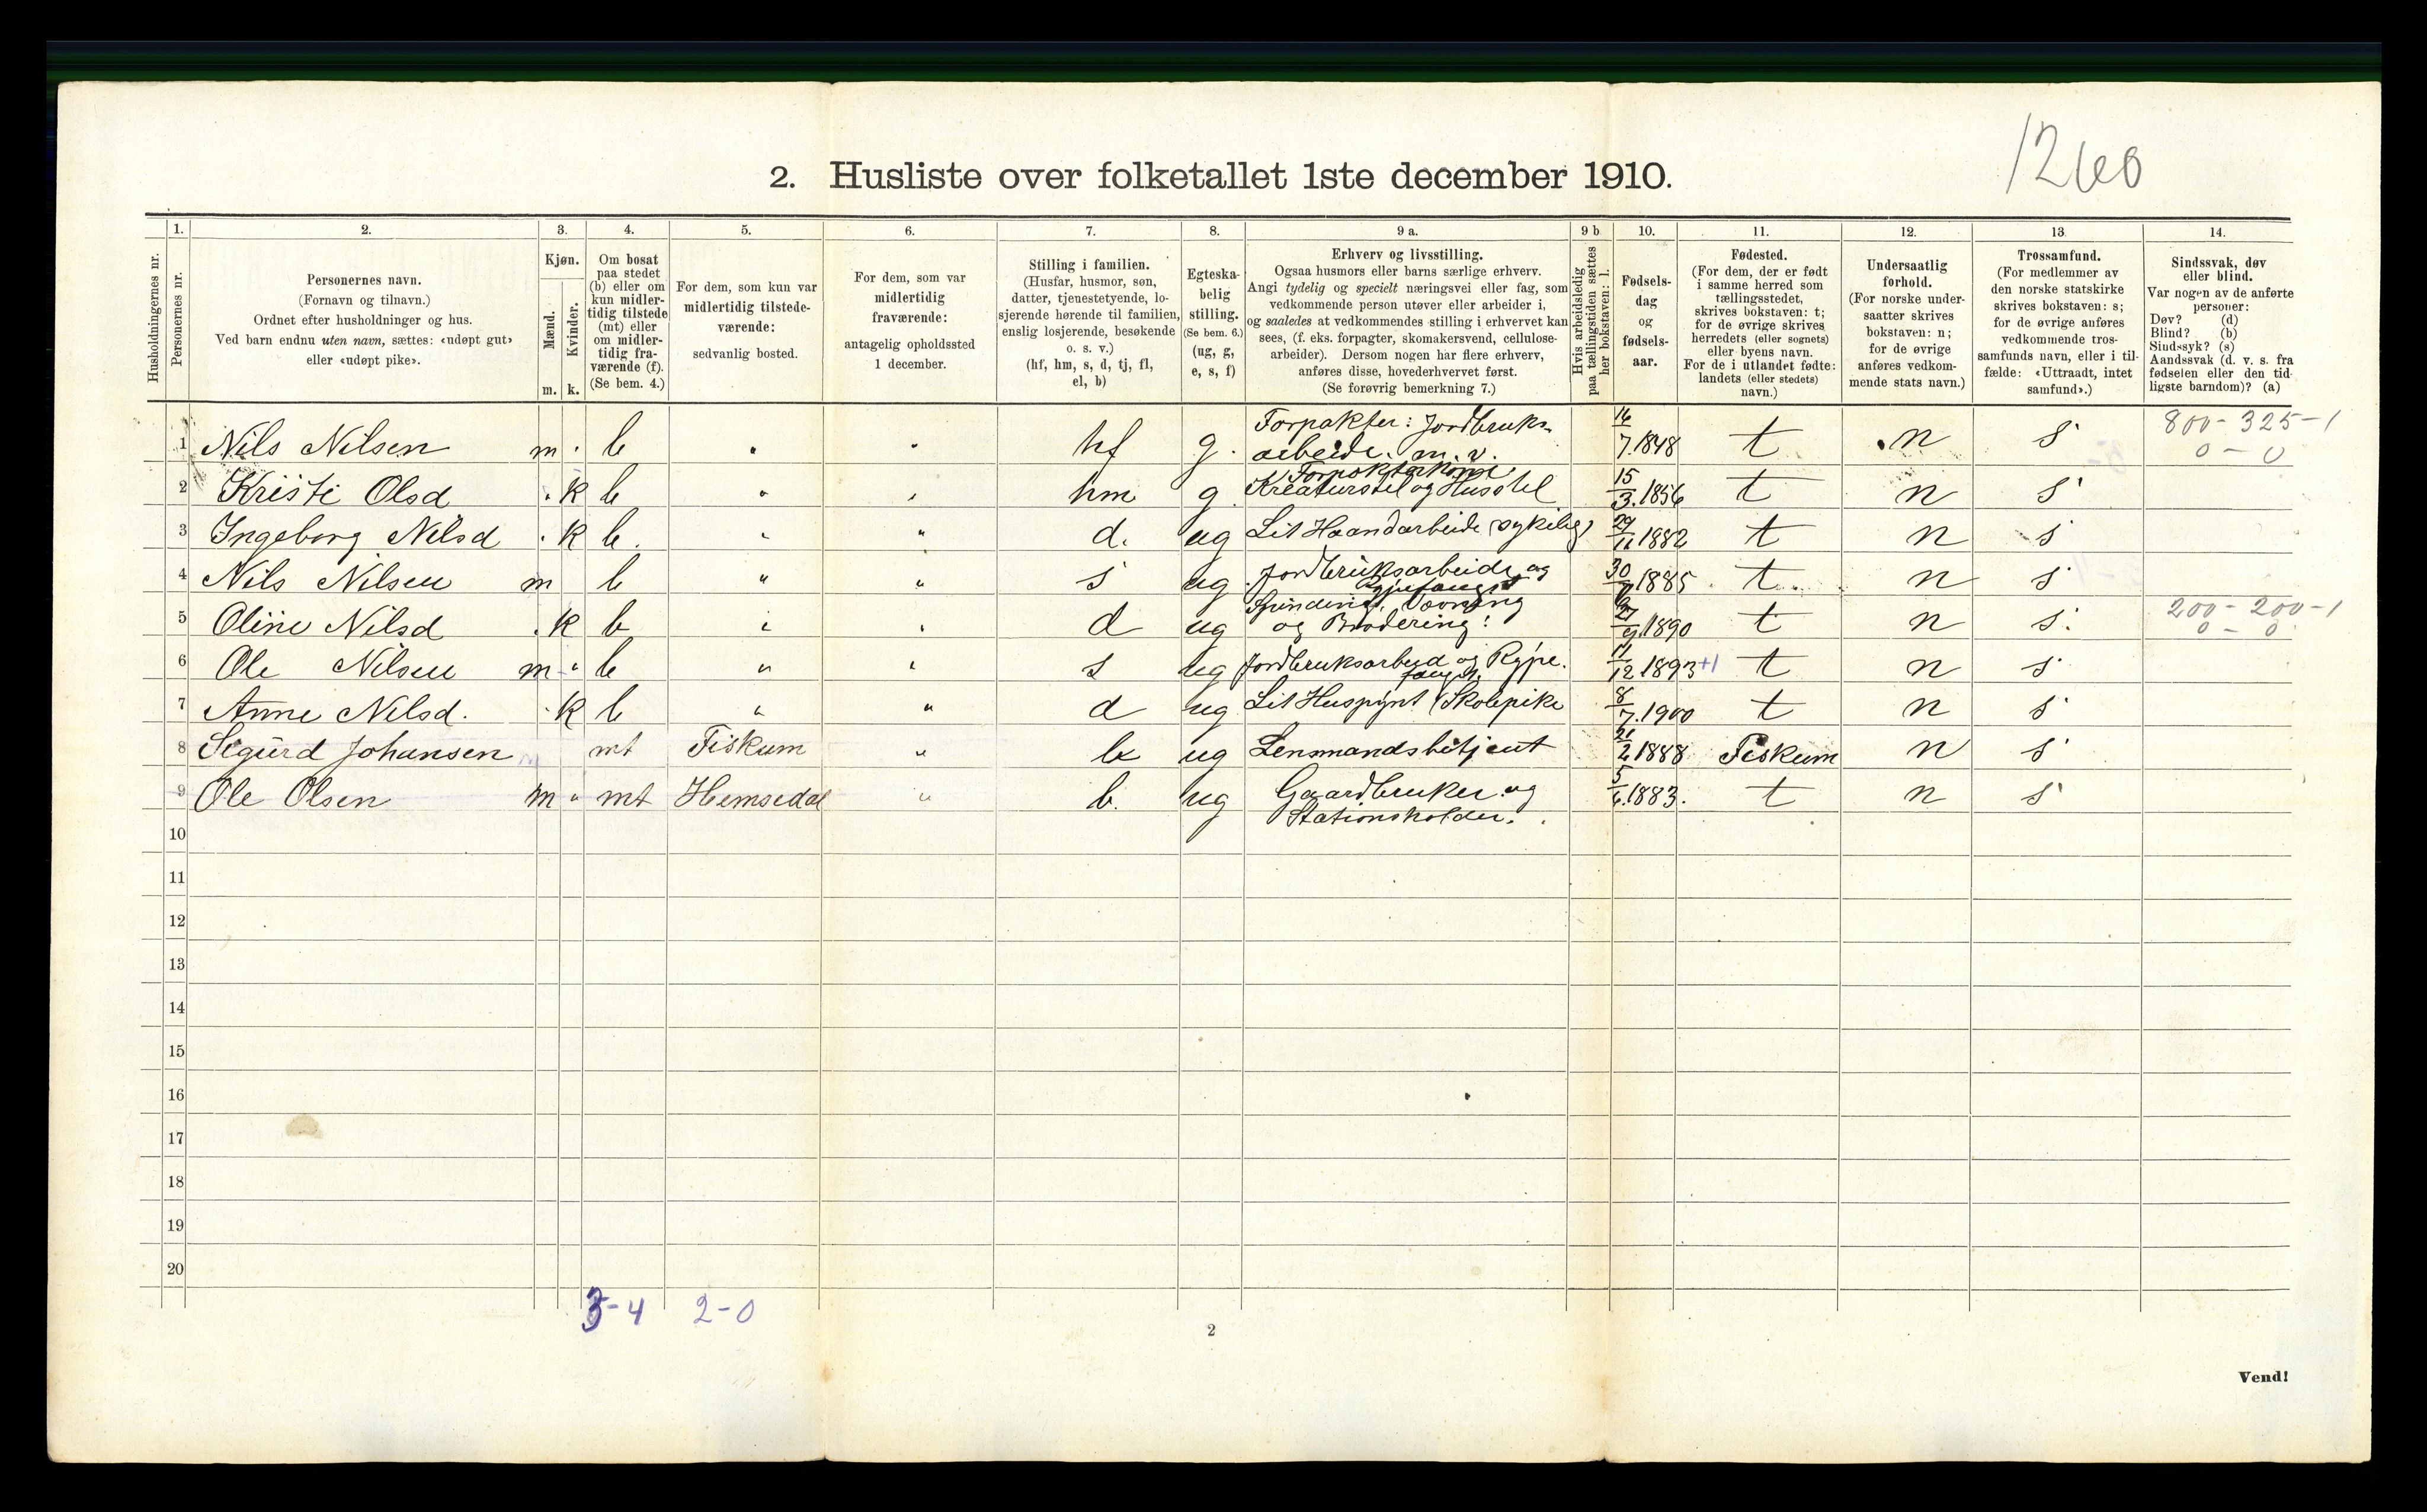 1260
2. Husliste over folketallet 1ste december 1910.
Husholdningernes nr.
1. Personernes nr.
2. Personernes navn.
(Fornavn og tilnavn.)
Ordnet efter husholdninger og hus.
Ved barn endnu uten navn, sættes: «udøpt gut»
eller «udøpt pike».
3. Kjøn.
Mænd. m.
Kvinder. k.
4. Om bosat
paa stedet
(b) eller om
kun midler-
tidig tilstede
(mt) eller
om midler-
tidig fra-
værende (f).
(Se bem. 4.)
5. For dem, som kun var
midlertidig tilstede-
værende:
sedvanlig bosted.
6. For dem, som var
midlertidig
fraværende:
antagelig opholdssted
1 december.
7. Stilling i familien.
(Husfar, husmor, søn,
datter, tjenestetyende, lo-
sjerende hørende til familien,
enslig losjerende, besøkende
o. s. v.)
(hf, hm, s, d, tj, fl,
el, b)
8. Egteska-
belig
stilling.
(Se bem. 6.)
(ug, g,
e, s, f)
9 a. Erhverv og livsstilling.
Ogsaa husmors eller barns særlige erhverv.
Angi tydelig og specielt næringsvei eller fag, som
vedkommende person utøver eller arbeider i,
og saaledes at vedkommendes stilling i erhvervet kan
sees, (f. eks. forpagter, skomakersvend, cellulose-
arbeider). Dersom nogen har flere erhverv,
anføres disse, hovederhvervet først.
(Se forøvrig bemerkning 7.)
9 b Hvis arbeidsledig
paa tællingstiden sættes
her bokstaven: l.
10. Fødsels-
dag
og
fødsels-
aar.
11. Fødested.
(For dem, der er født
i samme herred som
tællingsstedet,
skrives bokstaven: t;
for de øvrige skrives
herredets (eller sognets)
eller byens navn.
For de i utlandet fødte:
landets (eller stedets)
navn.)
12. Undersaatlig
forhold.
(For norske under-
saatter skrives
bokstaven: n;
for de øvrige
anføres vedkom-
mende stats navn.)
13. Trossamfund.
(For medlemmer av
den norske statskirke
skrives bokstaven: s;
for de øvrige anføres
vedkommende tros-
samfunds navn, eller i til-
fælde: «Uttraadt, intet
samfund».)
14. Sindssvak, døv
eller blind.
Var nogen av de anførte
personer:
Døv? (d)
Blind? (b)
Sindssyk? (s)
Aandssvak (d. v. s. fra
fødselen eller den tid-
ligste barndom)? (a)
1 Nils Nilsen m b hf g. Forpakter: Jordbruks- arbeide. m. v. 16/7.1848 t n s 800-325-1 0-0
2 Kristi Olsd k b hm g Forpakterkone Kreaturstel og Husstel 15/3.1856 t n s
3 Ingeborg Nilsd k b. d. ug Lit Haandarbeide 1882 t n s
4 Nils Nilsen m b s ug Jordbruksarbeide og Rypefangst 30 1885 t n s
5 Oline Nilsd k b d ug Spinding, Vævning og Brodering: 1890 t n s. 200-200-1 0-0
6 Ole Nilsen m b s ug Jordbruksarbeid og Rype. fangst. 11/12 1893 +1 t n s
7 Anne Nilsd. k b d ug Lit Huspynt (Skolepike 8/7.1900 t n s
8 Sigurd Johansen mt Fiskum b ug Lensmandsbetjent 21/2 1888 Fiskum n s
9 Ole Olsen m mt Hemsedal b. ug Gaardbruker og Stationsholder. 5/6.1883. t n s
10
11
12
13
14
15
16
17
18
19
20
3-4 2-0
2
Vend!